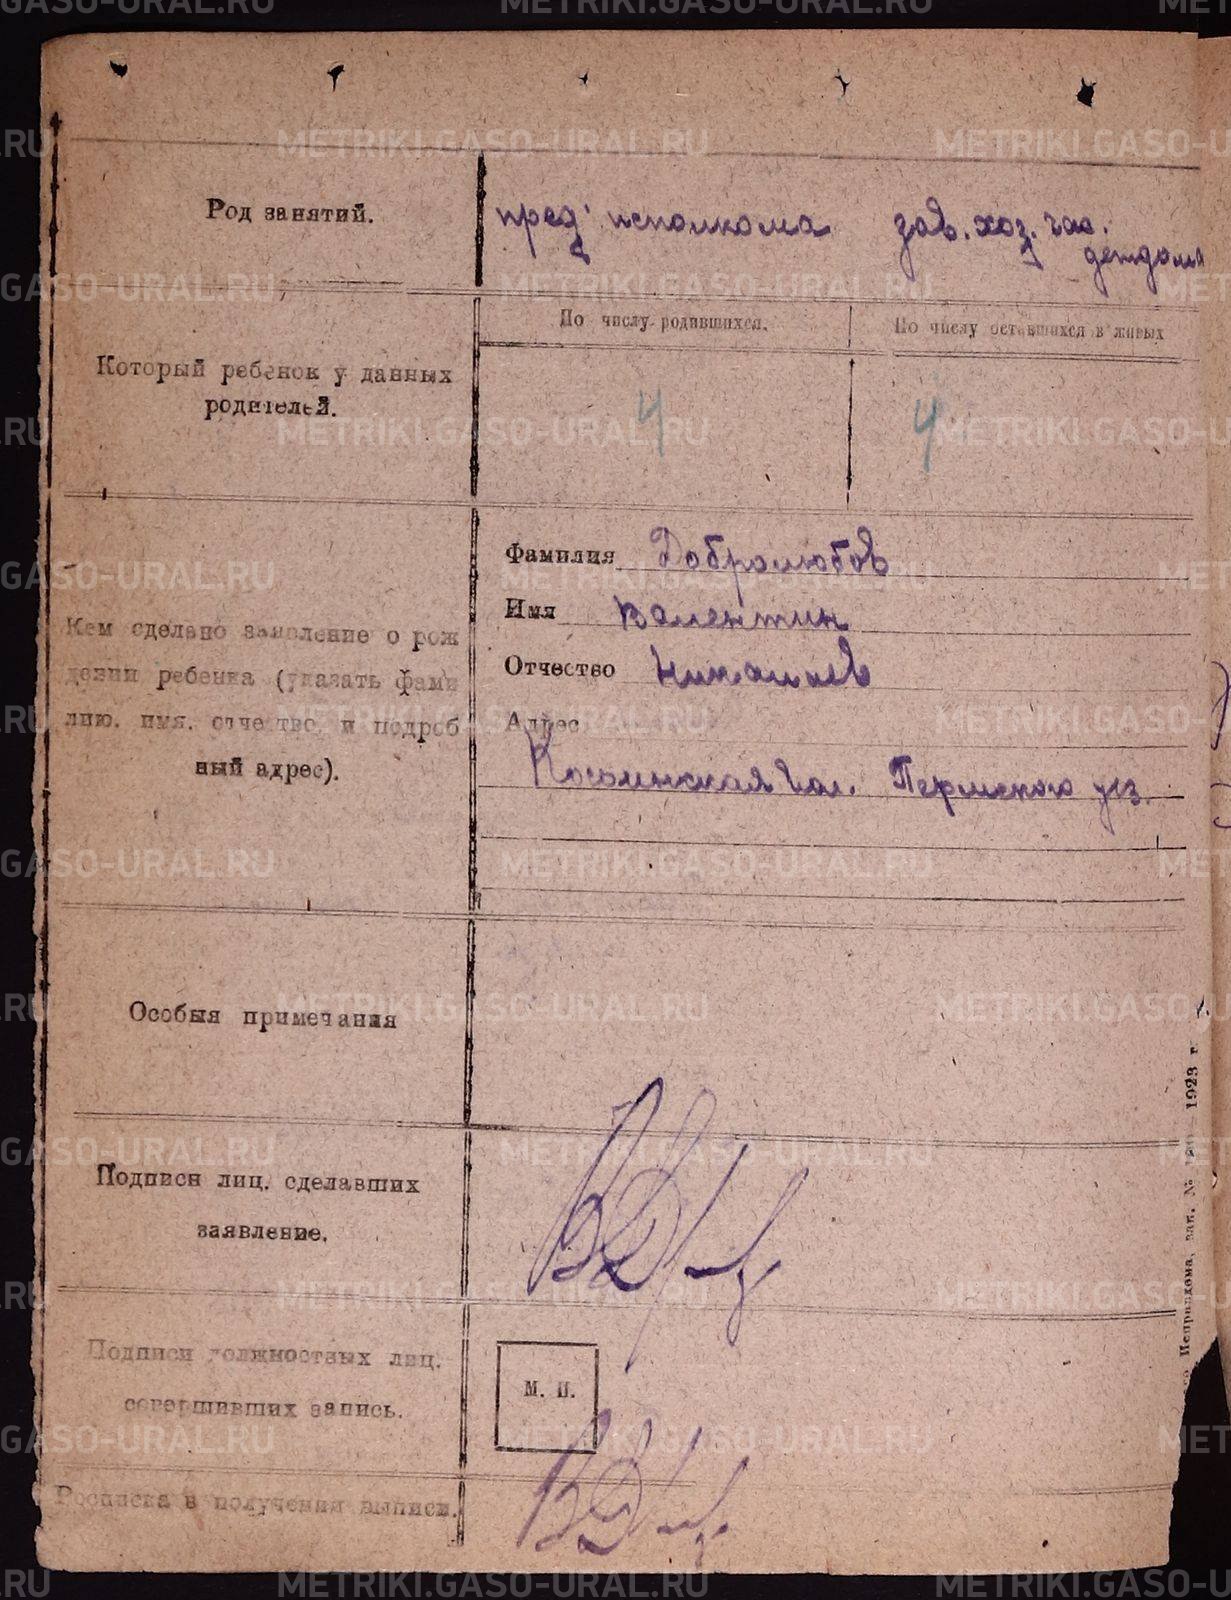 Род занятий.
пред. исполкома
зав. хоз. гос.
детдома
Который ребенок у данных
родителей.
По числу родившихся.
По числу оставшихся в живых
4
4
Кем сделано заявление о рож
дении ребенка (указать фами
лию, имя, отчество и подроб
ный адрес).
Фамилия Добролюбов
Имя Валентин
Отчество Николаев
Адрес
вол. Пермского уез.
Особыя примечания
Подписи лиц, сделавших
заявление.
Подписи должностных лиц,
совершивших запись.
М. П.
Росписка в получении выписи.
зак. № 1923 г.
METRIKI.GASO-URAL.RU